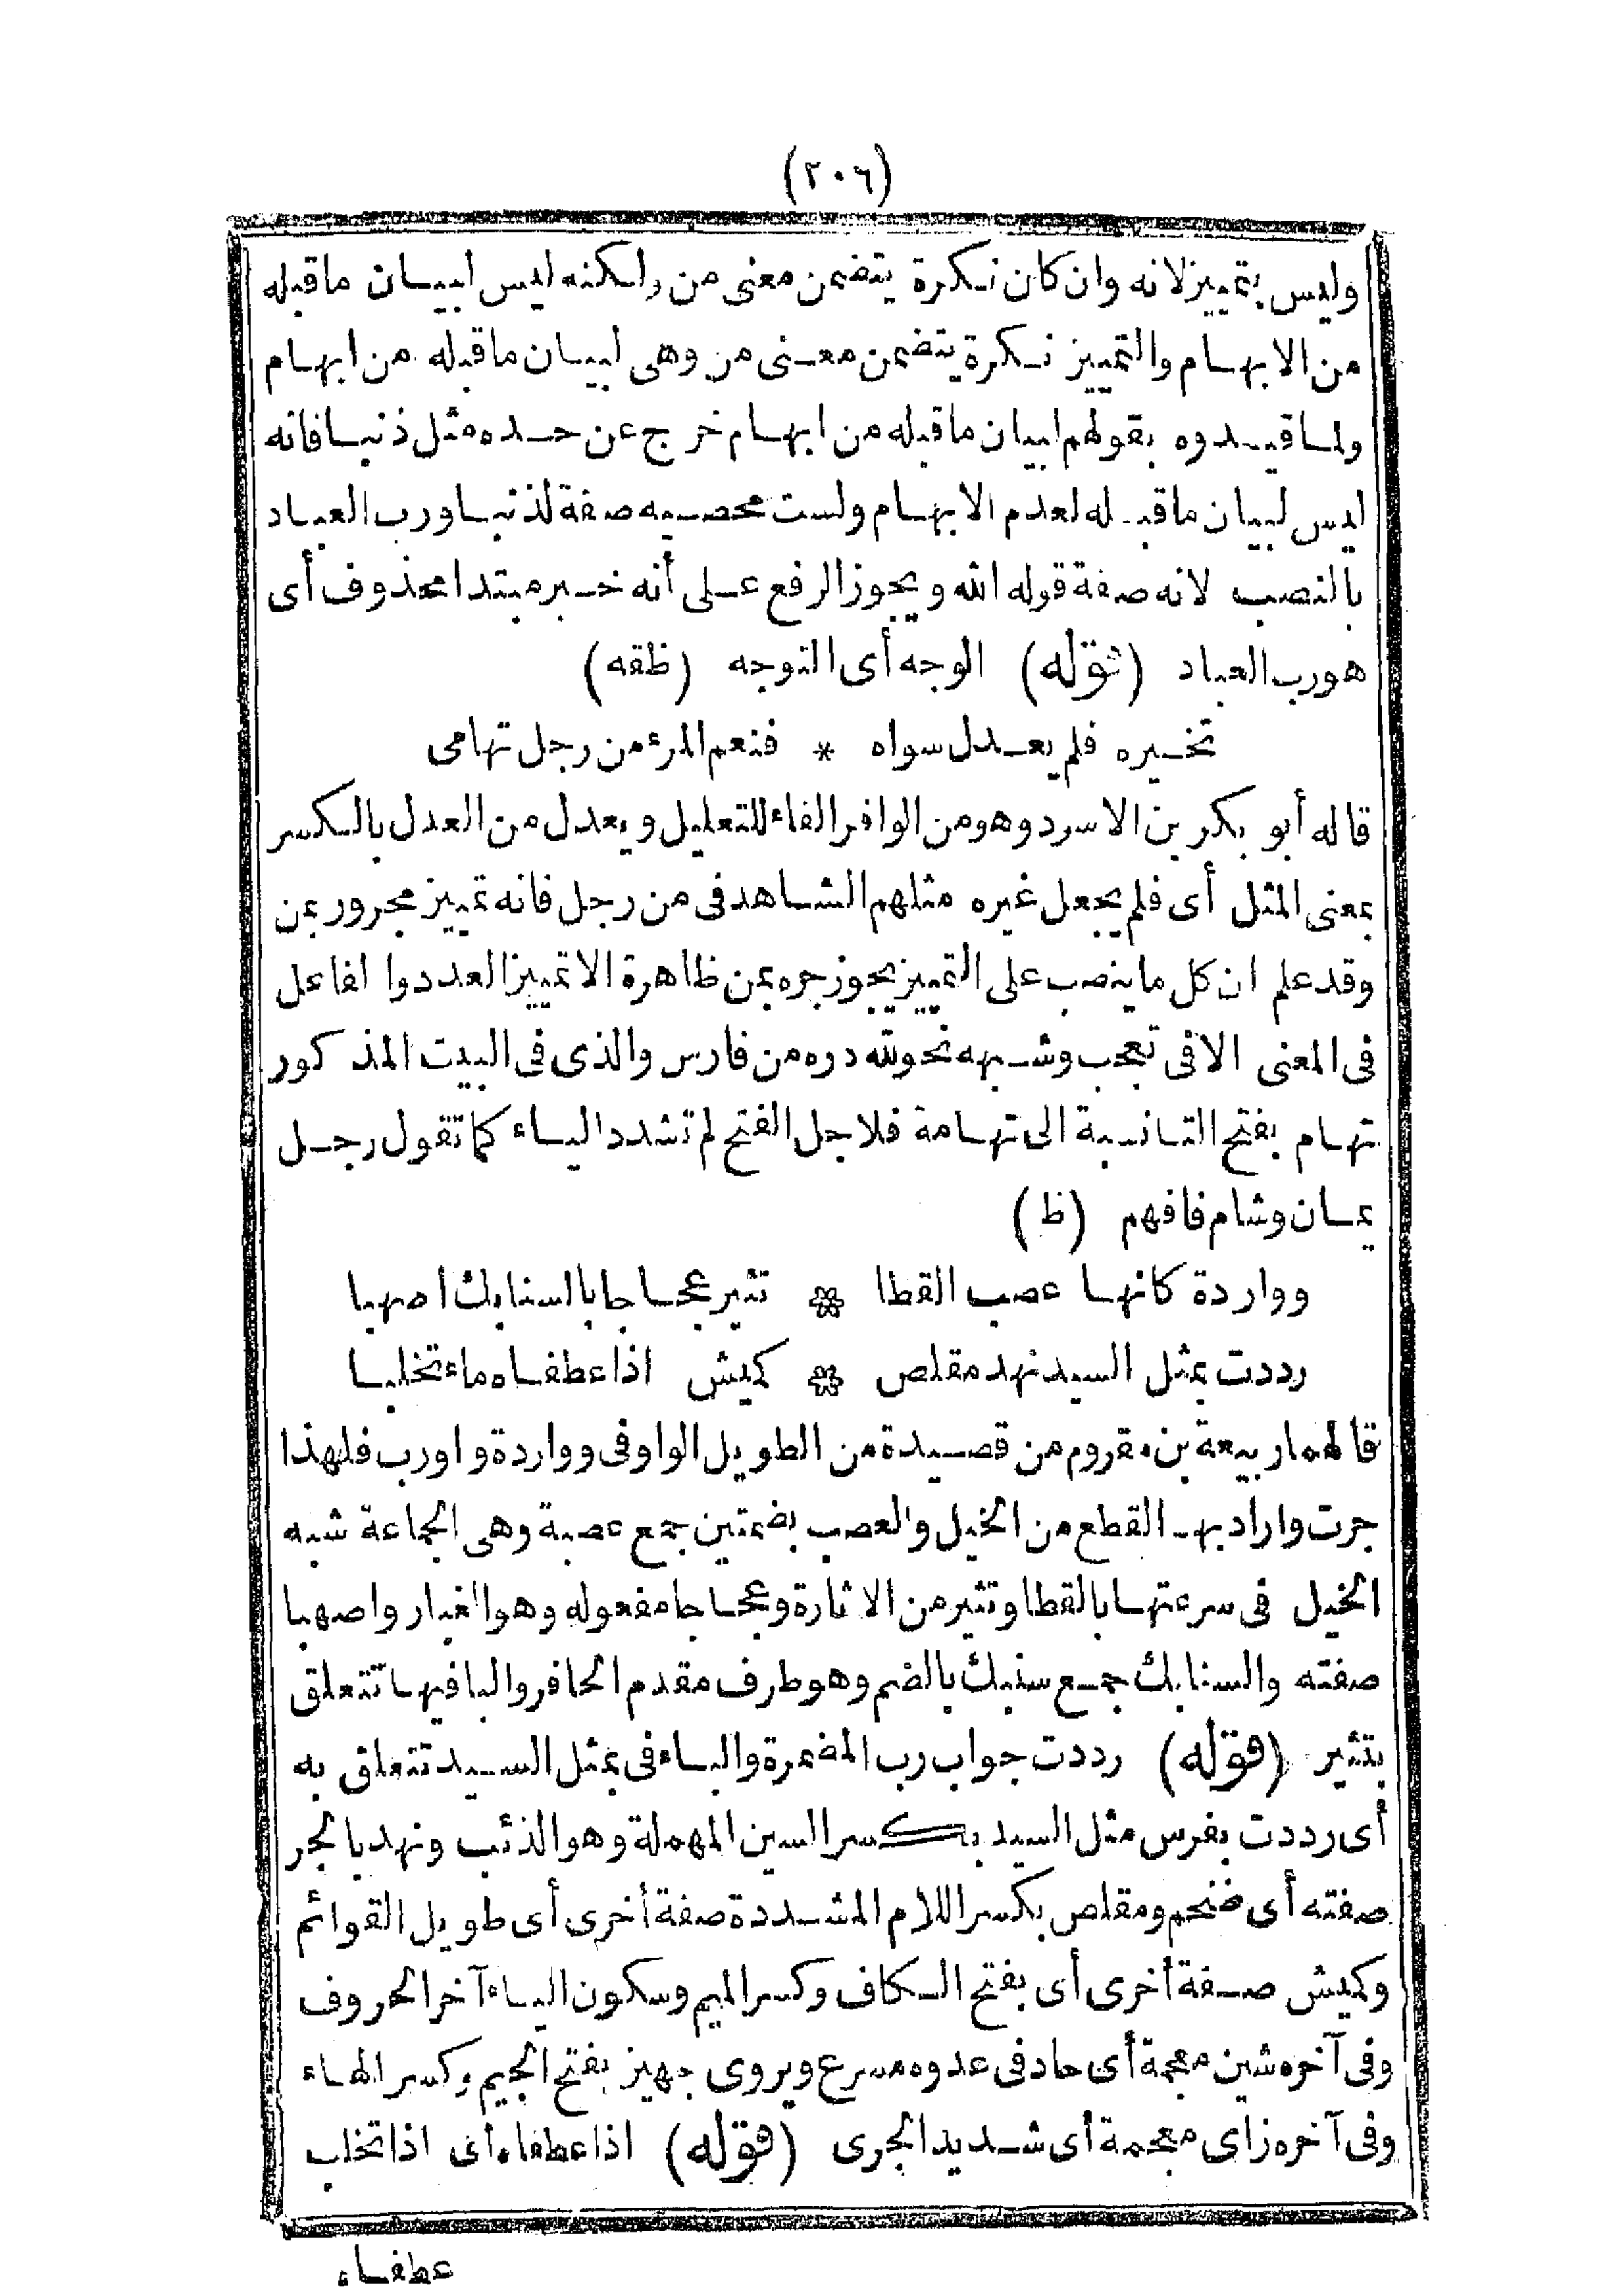 (٢٠٦)
وليس بتمييز لانه وان كان نكرة يتضمن معنى من ولكنه ليس لبيان ماقبله
من الابهام والتمييز نكرة يتضمن معنى من وهى لبيان ماقبله من ابهام
ولما قيدوه بقولهم لبيان ماقبله من ابهام خرج عن حده مثل ذنبا فانه
ليس لبيان ماقبله لعدم الابهام ولست محصيه صفة لذنبا ورب العباد
بالنصب لانه صفة قوله الله ويجوز الرفع على أنه خبر مبتدا محذوف أى
هو رب العباد (قوله) الوجه أى التوجه (ظقه)
تخيره فلم يعدل سواه * فنعم المرء من رجل تهامى
قاله أبو بكر بن الاسود وهو من الوافر الفاء للتعليل ويعدل من العدل بالكسر
بمعنى المثل أى فلم يجعل غيره مثلهم الشاهد فى من رجل فانه تمييز مجرور بمن
وقد علم ان كل ما ينصب على التمييز يجوز جره بمن ظاهرة الا تمييز العدد وا لفاعل
فى المعنى الا فى تعجب وشبهه نحو لله دره من فارس والذى فى البيت المذكور
تهام بفتح التا نسبة الى تهامة فلاجل الفتح لم تشدد الياء كما تقول رجل
يمان وشام فافهم (ظ)
وواردة كانها عصب القطا * تثير عجاجا بالسنابك اصهبا
رددت بمثل السيد نهد مقلص * كميش اذا عطفاه ماء تحلبا
قالهما ربيعة بن مقروم من قصيدة من الطويل الواو فى وواردة واو رب فلهذا
جرت واراد بها القطع من الخيل والعصب بضمتين جمع عصبة وهى الجماعة شبه
الخيل فى سرعتها بالقطا وتثير من الاثارة وعجاجا مفعوله وهو الغبار واصهبا
صفته والسنابك جمع سنبك بالضم وهو طرف مقدم الحافر والبا فيها تتعلق
بتثير (قوله) رددت جواب رب المضمرة والباء فى بمثل السيد تتعلق به
أى رددت بفرس مثل السيد بكسر السين المهملة وهو الذئب ونهد بالجر
صفته أى ضخم ومقلص بكسر اللام المشددة صفة أخرى أى طويل القوائم
وكميش صفة أخرى أى بفتح الكاف وكسر الميم وسكون الياء آخر الحروف
وفى آخره شين معجمة أى حاد فى عدوه مسرع ويروى جهيز بفتح الجيم وكسر الهاء
وفى آخره زاى معجمة أى شديد الجرى (قوله) اذا عطفاه أى اذا تحلب
عطفاه